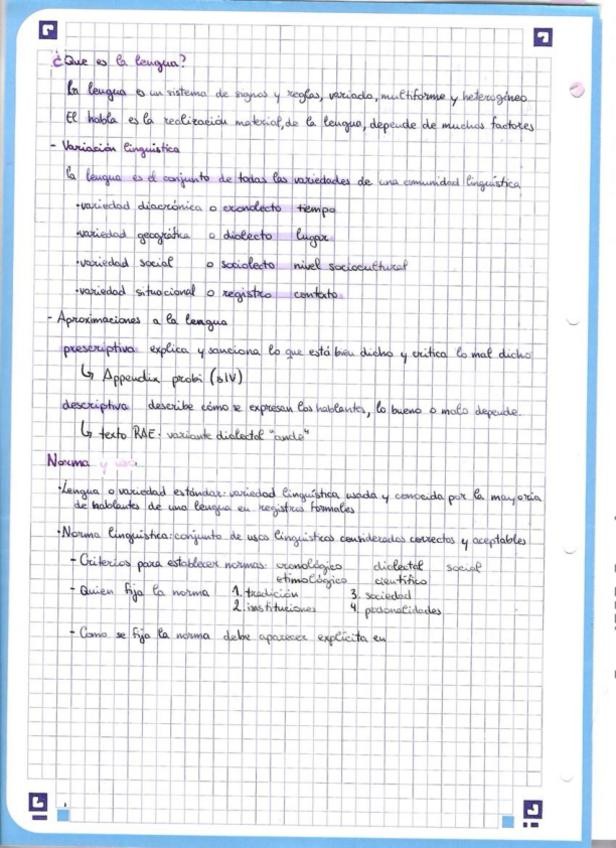 ¿Que es la lengua?
La lengua es un sistema de signos y reglas, variado, multiforme y heterogéneo
El habla es la realización material, de la lengua, depende de muchos factores
- Variación linguistica
la lengua es el conjunto de todas las variedades de una comunidad linguística
·variedad diacrónica o cronolecto tiempo
·variedad geográfica o dialecto lugar
·variedad social o sociolecto nivel sociocultural
·variedad situacional o registro contexto
- Aproximaciones a la lengua
prescriptiva: explica y sanciona lo que está bien dicho y critica lo mal dicho
↳ Appendix probi (sIV)
descriptiva describe cómo se expresan los hablantes, lo bueno o malo depende.
↳ texto RAE. variante dialectal "ande"
Norma y uso
·Lengua o variedad estándar: variedad linguística usada y conocida por la mayoria
de hablantes de una lengua en registros formales
·Norma linguistica: conjunto de usos linguisticos considerados correctos y aceptables
- Criterios para establecer normas: cronológico dialectal social
etimológico científico
- Quien fija la norma 1. tradición 3. sociedad
2. instituciones 4. personalidades
- Como se fija la norma debe aparecer explícita en